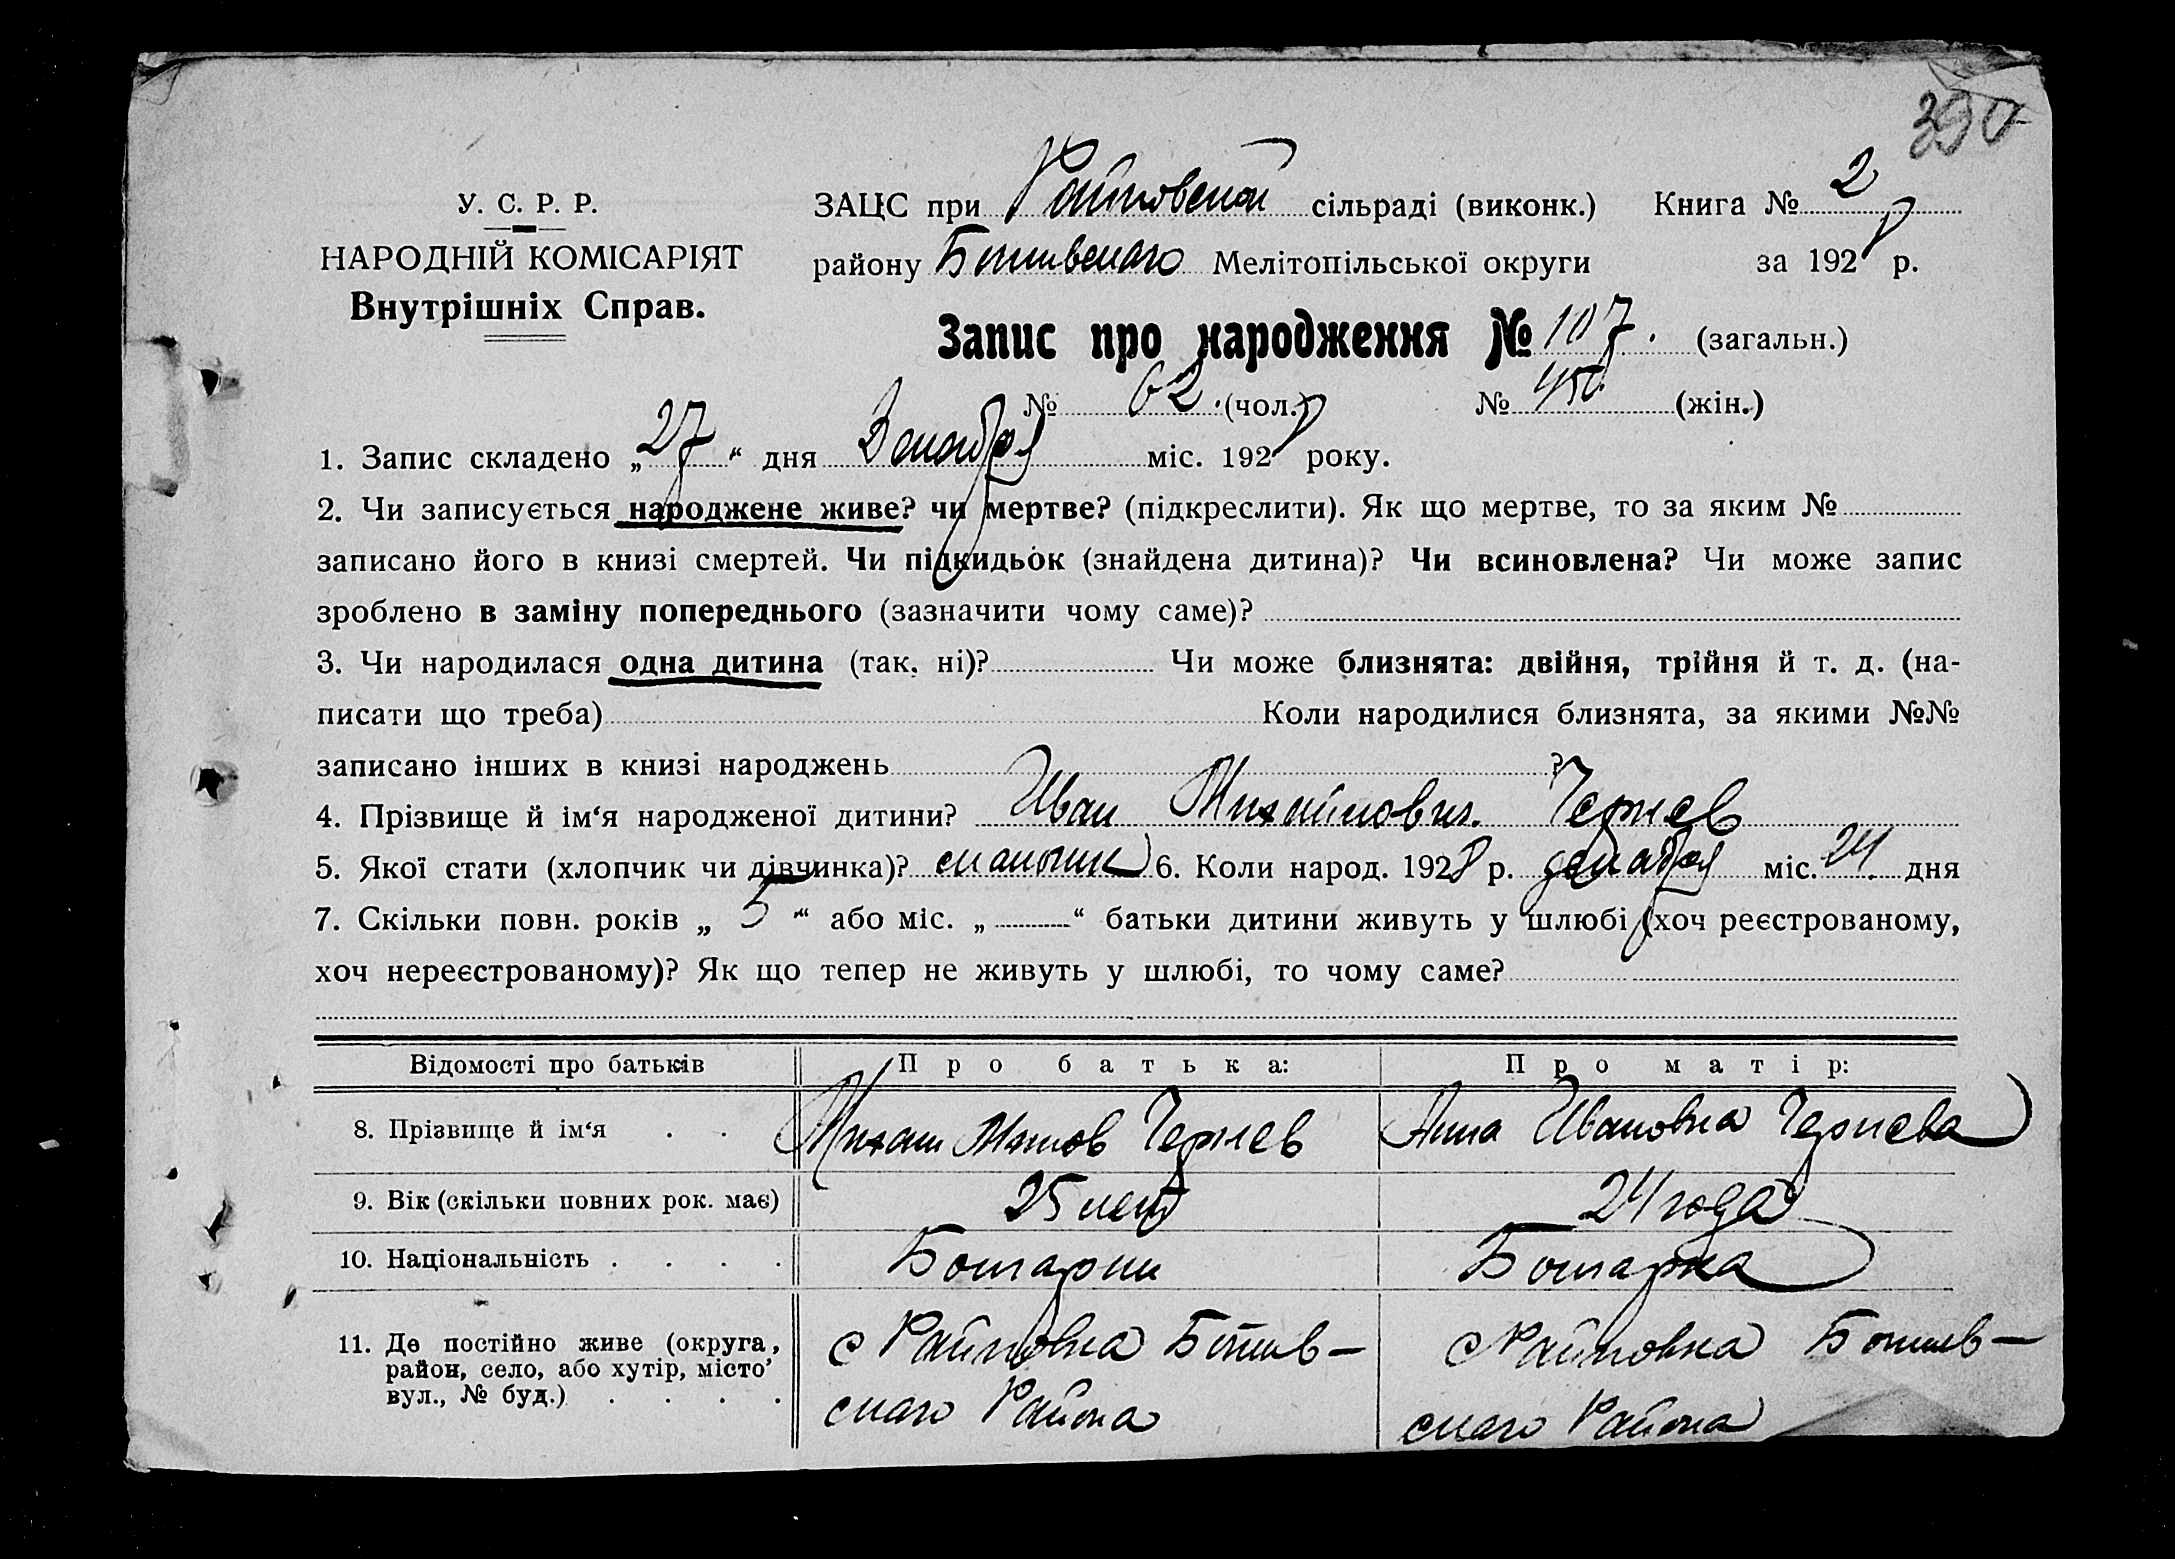 390
У. С. Р. Р.
НАРОДНІЙ КОМІСАРІЯТ
Внутрішніх Справ.
ЗАЦС при Райновской сільраді (виконк.) Книга № 2
району Ботивского Мелітопільської округи за 1928 р.
Запис про народження № 107. (загальн.)
№ 62. (чол.) № (жін.)
1. Запис складено „27“ дня Декабря міс. 1928 року.
2. Чи записується народжене живе? чи мертве? (підкреслити). Як що мертве, то за яким №
записано його в книзі смертей. Чи підкидьок (знайдена дитина)? Чи всиновлена? Чи може запис
зроблено в заміну попереднього (зазначити чому саме)?
3. Чи народилася одна дитина (так, ні)? Чи може близнята: двійня, трійня й т. д. (на-
писати що треба) Коли народилися близнята, за якими №№
записано інших в книзі народжень ?
4. Прізвище й ім‘я народженої дитини? Иван Михайлович. Чернев
5. Якої стати (хлопчик чи дівчинка)? 6. Коли народ. 1928 р. декабря міс. 24 дня
7. Скільки повн. років „ 5 “ або міс. „ “ батьки дитини живуть у шлюбі (хоч реєстрованому,
хоч нереєстрованому)? Як що тепер не живуть у шлюбі, то чому саме?
Відомості про батьків Про батька: Про матір:
8. Прізвище й ім‘я . . Михаил Чернев Анна Ивановна Чернева
9. Вік (скільки повних рок. має) 25 лет 24 года
10. Національність . . . . Болгарин Болгарка
11. Де постійно живе (округа, район, село, або хутір, місто’ вул., № буд.) . . . .
с Райновка Ботив-
ского Района
с Райновка Ботив-
ского Района